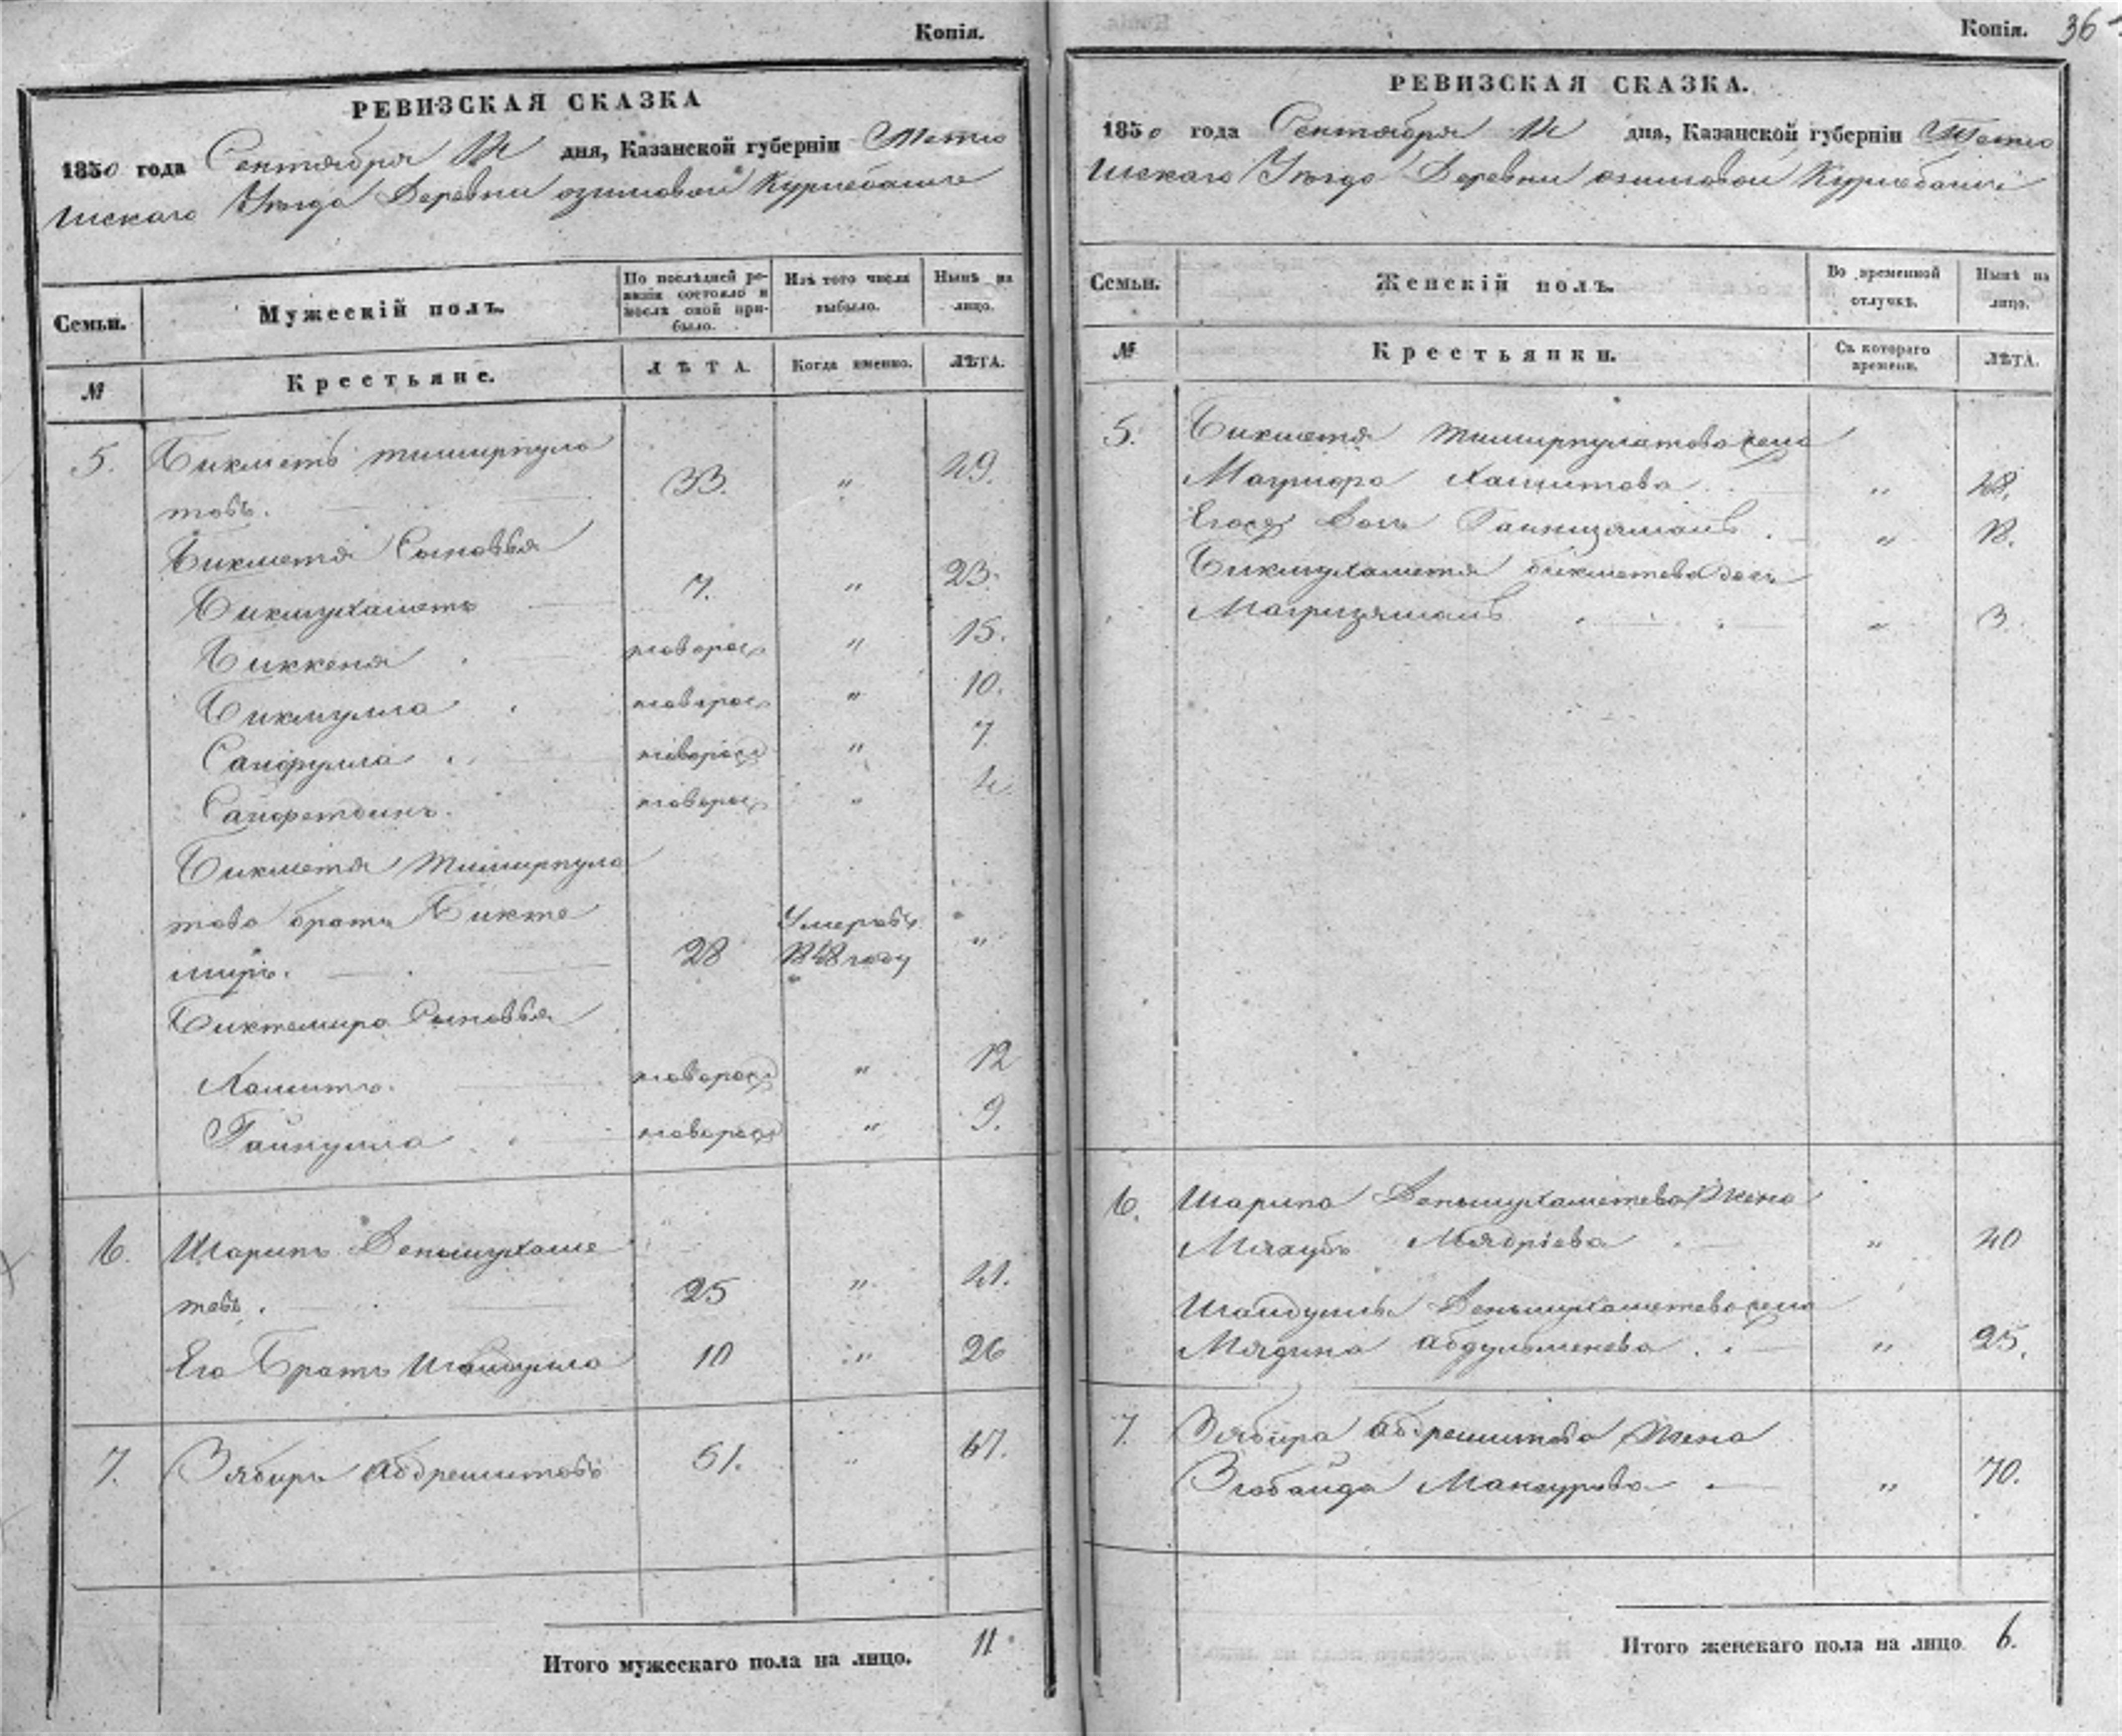 Копія.
РЕВИЗСКАЯ СКАЗКА
1850 года Сентября дня, Казанской губерніи Тетю
шскаго Уѣзда Деревни
Семьи. Мужескій полъ. По послѣдней ре-визіи состояло и послѣ оной при-было. Изъ того числа выбыло. Нынѣ на лицо.
№ Крестьяне. ЛѢТА. Когда именно. ЛѢТА.
5. Бикметь тимирпула
товъ. 33. " 49.
Бикметя Сыновья
Бикмухаметь 7. " 23.
Биккеня новорож " 15.
Бикмулла новорож " 10.
Сайфулла новорож " 7
Сайфетдинъ. новорож " 4
Бикметя тимирпула
това братъ Бикте
миръ. 28 Умеръ въ 1848 году "
Биктемира Сыновья
Хамитъ. новорож " 12
Гайнулла новорож " 9.
6. Шарипъ Деньмухаме
товъ. 25 " 41.
Его Братъ 10 " 26
7. Зябиръ абдрешитовъ 51. " 67.
Итого мужескаго пола на лицо. 11
Копія. 36
РЕВИЗСКАЯ СКАЗКА.
1850 года Сентября дня, Казанской губерніи Тетю
шскаго Уѣзда Деревни
Семьи. Женскій полъ. Во временной отлучкѣ. Нынѣ на лицо.
№ Крестьянки. Съ котораго времени. ЛѢТА.
5. Бикметя тимирпулатова жена
Хамитова " 48.
Егоже дочь Гайнизямаль " 18.
Бикмухаметя бикметева дочь
Магризямаль " 3.
6. Шарипа Деньмухаметева Жена
" 40
Деньмухаметева жена
Мядина " 25.
7. Зябира абдрешитова Жена
Зюбайда Мансурова " 70.
Итого женскаго пола на лицо 6.